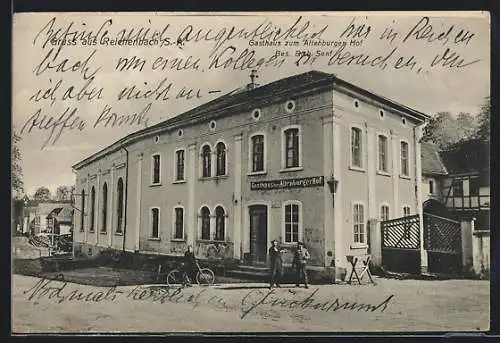 Gruss aus Reichenbach S.-A.
Gasthaus zum Altenburger Hof
Bes. Bab. Senf
Befinde mich augenblicklich hier in Reichen
bach, um einen Kollegen zu besuchen, den
ich aber nicht an-
treffen konnte.
GASTHAUS ZUM ALTENBURGER HOF.
Nochmals herzlichen Glückwunsch!